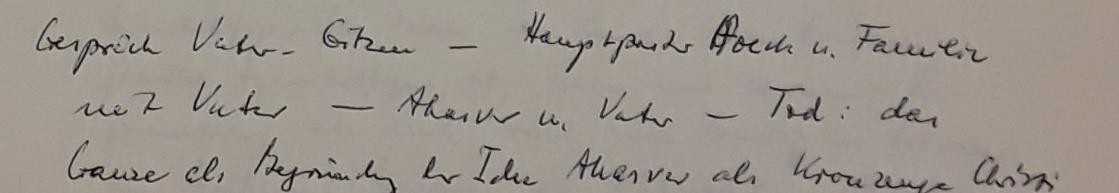 Gespräch Vater - – Hauptpunkte u. Familie
mit Vater – Ahasver u. Vater – Tod: das
Ganze als Begründung der Idee Ahasver als Kronzeuge Christi